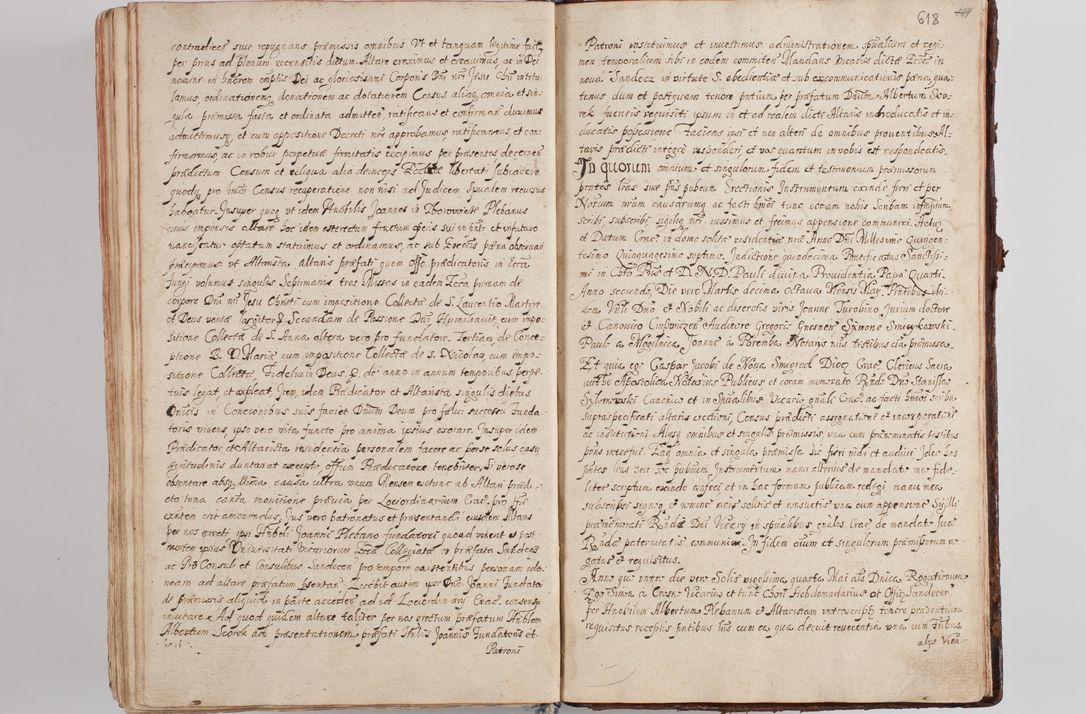 contradices sive repugnans præmissis omnibus Vt et tanquam legitime fact
per prius ad plenum recensitis dictum Altare ereximus et creavimus, ac in Dei
nomine in honorem eiusdem Dei ac gloriosissimi Corporis Dnj nri Jesu Chri intitu
lamus, ordinationemq donationem ac dotationem Census aliaq omnia et sin-
gula præmissa facta et ordinata admitten ratificans et confirman duximus
admittimusq, et cum appositione Decreti nri approbamus ratificamus et con-
firmamus, ac in robur perpetuæ firmitatis recipimus per præsentes decernen
prædictum Censum et reliqua alia deinceps libertati subiacere
quodq pro Census recuperatione non nisi ad Judicem Spualem recursus
habeatur. Insuper quoq vt idem Honbilis Joannes in Plebanus
cuius impensis altare hoc idem
nanciscatur optatum statuimus et ordinamus, ac sub pæna observari
præcipimus vt Altarista altaris præfati quem Offo prædicatoris in Eccra
fungi volumus singulis Septimanis tres Missas in eadem Eccra primam de
corpore Dnj nri Jesu Christi cum impositione Collectæ de S. Laurentio Martyre
et Deus veniæ largitor Secundam de Passione Dnj Humiliavit cum impo-
sitione Collectæ de S. Anna altera vero pro fundator. Tertiam de Conce-
ptione B. V. Mariæ cum impositione Collectæ de S. Nicolao, cum impo-
sitione Collectæ Fidelium Deus. de anno in annum temporibus perpe-
tuis legat, et expleat, Item idem Prædicator et Altarista singulis diebus
in Concionibus suis faciet Dnum Deum pro felici successu Funda-
toris vivens ipso vero vita functo pro anima ipsius exorare. Insuper idem
Prædicator et Altarista residentia personalem facere ac per se solus casu
ægritudinis duntaxat except. offum Prædicatoræ tenebitur, Si vero se
absentare absq causa vltra vnum Mensem extunc ab Altari prædi-
cto vna monitione prævia per Loci ordinarium Crac. pro
exntem erit amovendus, Jus vero patronatus et præsentandi eiusdem Altaris
per nos erecti ipsi Honbili Joanni Plebano fundatori quoad vixerit et post
mortem ipsius Vniversitati Vicariorum Eccæ Collegiatæ in præfata Sandecz
ac Pro Consuli et Consulibus Sandecen pro tempore existentibus personam ido-
neam ad altare præfatum pæntan Licebit autem ipsi Joanni Fundatori
de præmissis aliquid in parte acceden ad id Loci ordinarij Crac. consensu
inuitare Ad quod quidem altare taliter per nos erectum præfatum Hnblem
Albertum Scorek ad præsentationem præfati Hnblis Joannis Fundatoris et
Patroni
618
Patroni instituimus et inuestimus administrationem spualium et regi-
men temporalium sibi in eodem committen Mandans Vicariis dictæ Eccæ in
noua Sandecz in virtute S. obedientiæ et sub excommunicationis pæna, qua-
tenus dum et postquam tenore pntium per præfatum Dnum Albertum Sko-
rek fueritis requisiti ipsum in et ad realem dicti Altaris introducatis et in-
ducatis possessione Faciens ipsi et non alteri de omnibus proventibus Al-
taris prædicti integre responderi et vos quantum in vobis est respondeatis.
In quorum omnium et singulorum fidem et testimonium præmissorum
pntes lras siue pns pubcum Erectionis Instrumentum exinde fieri et per
Notarium nrum causarumq ac facti tunc coram nobis Scribam infrscriptum
scribi subscribi sigiliq nri iussimus et fecimus appensione communiri. Actu
et Datum Crac. in domo solitæ residentiæ nræ Anno Dni Millesimo Quingen-
tesimo Quinquagesimo septimo. Indictione quindecima Pontificatus Sanctissi-
mi in Chro Pris et D. N. D. Pauli divina Providentia Papæ Quarti
Anno secundo, Die vero Martis decima octava Mensis May. Pntibus ibi-
dem Vnli Dno et Nobili ac discretis viris Joanne Turobino Jurium doctore
et Canonico Audacere Gregorio Gnesnen Symone Smieykowski
Paulo a Mogilnica Joanne a Poremba Notariis nris testibus cia præmissa.
Et quia ego Gaspar Jacobi de Noua Smigrod Diocz Crac. Clericus Sacra
autthe Apostolica Notarius Publicus et coram memorato Rndo Dno Stanislao
Szlomowski Canonico et in Spualibus Vicario gnali Crac. ac facti huius scriba
supraspecificati altaris erectioni, Census prædicti assignationi et incorporationi
ac institutioni Aliisq omnibus et singulis præmissis, vna cum prænominatis testibus
pns interfui Eaq omnia et singula præmissa sic fieri vidi et audivi ideo has
pntes lras seu hoc pubcum Instrumentum manu alterius de mandato meo fide-
liter scriptum exinde confeci et in hac formam publicam redegi manu mea
subscripsi signoq et nomine meis solitis et consuetis vna cum appensione Sigilli
prænominati Rndæ Dni Vicarij in spualibus gnales Crac. de mandato suæ
Rndæ paternitatis communivi. In fidem oium et singulorum præmissorum ro-
gatus et requisitus.
Anno quo inter die vero Solis vigesima quarta Maii als Dnica Rogationum
Ego Simon a Crosn Vicarius et tunc Chori Hebdomadarius et Offlis Sandecen
per Honblem Albertum Plebanum et Altaristam introscriptum tenore præsentium
requisitus receptis pntibus lris cum ea qua decuit reverentia vna cum tribus
alijs Vica-